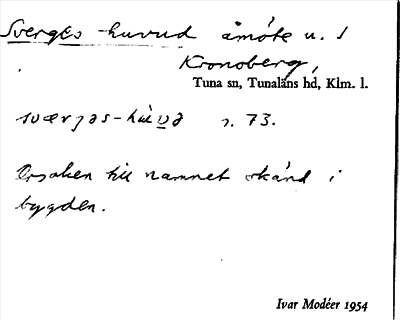 Sverges-huvud åmöte u. 1
Kronoberg,
Tuna sn, Tunaläns hd, Klm. l.
sværjəs-hu̇və s. 73.
Orsaken till namnet okänd i
bygden.
Ivar Modéer 1954